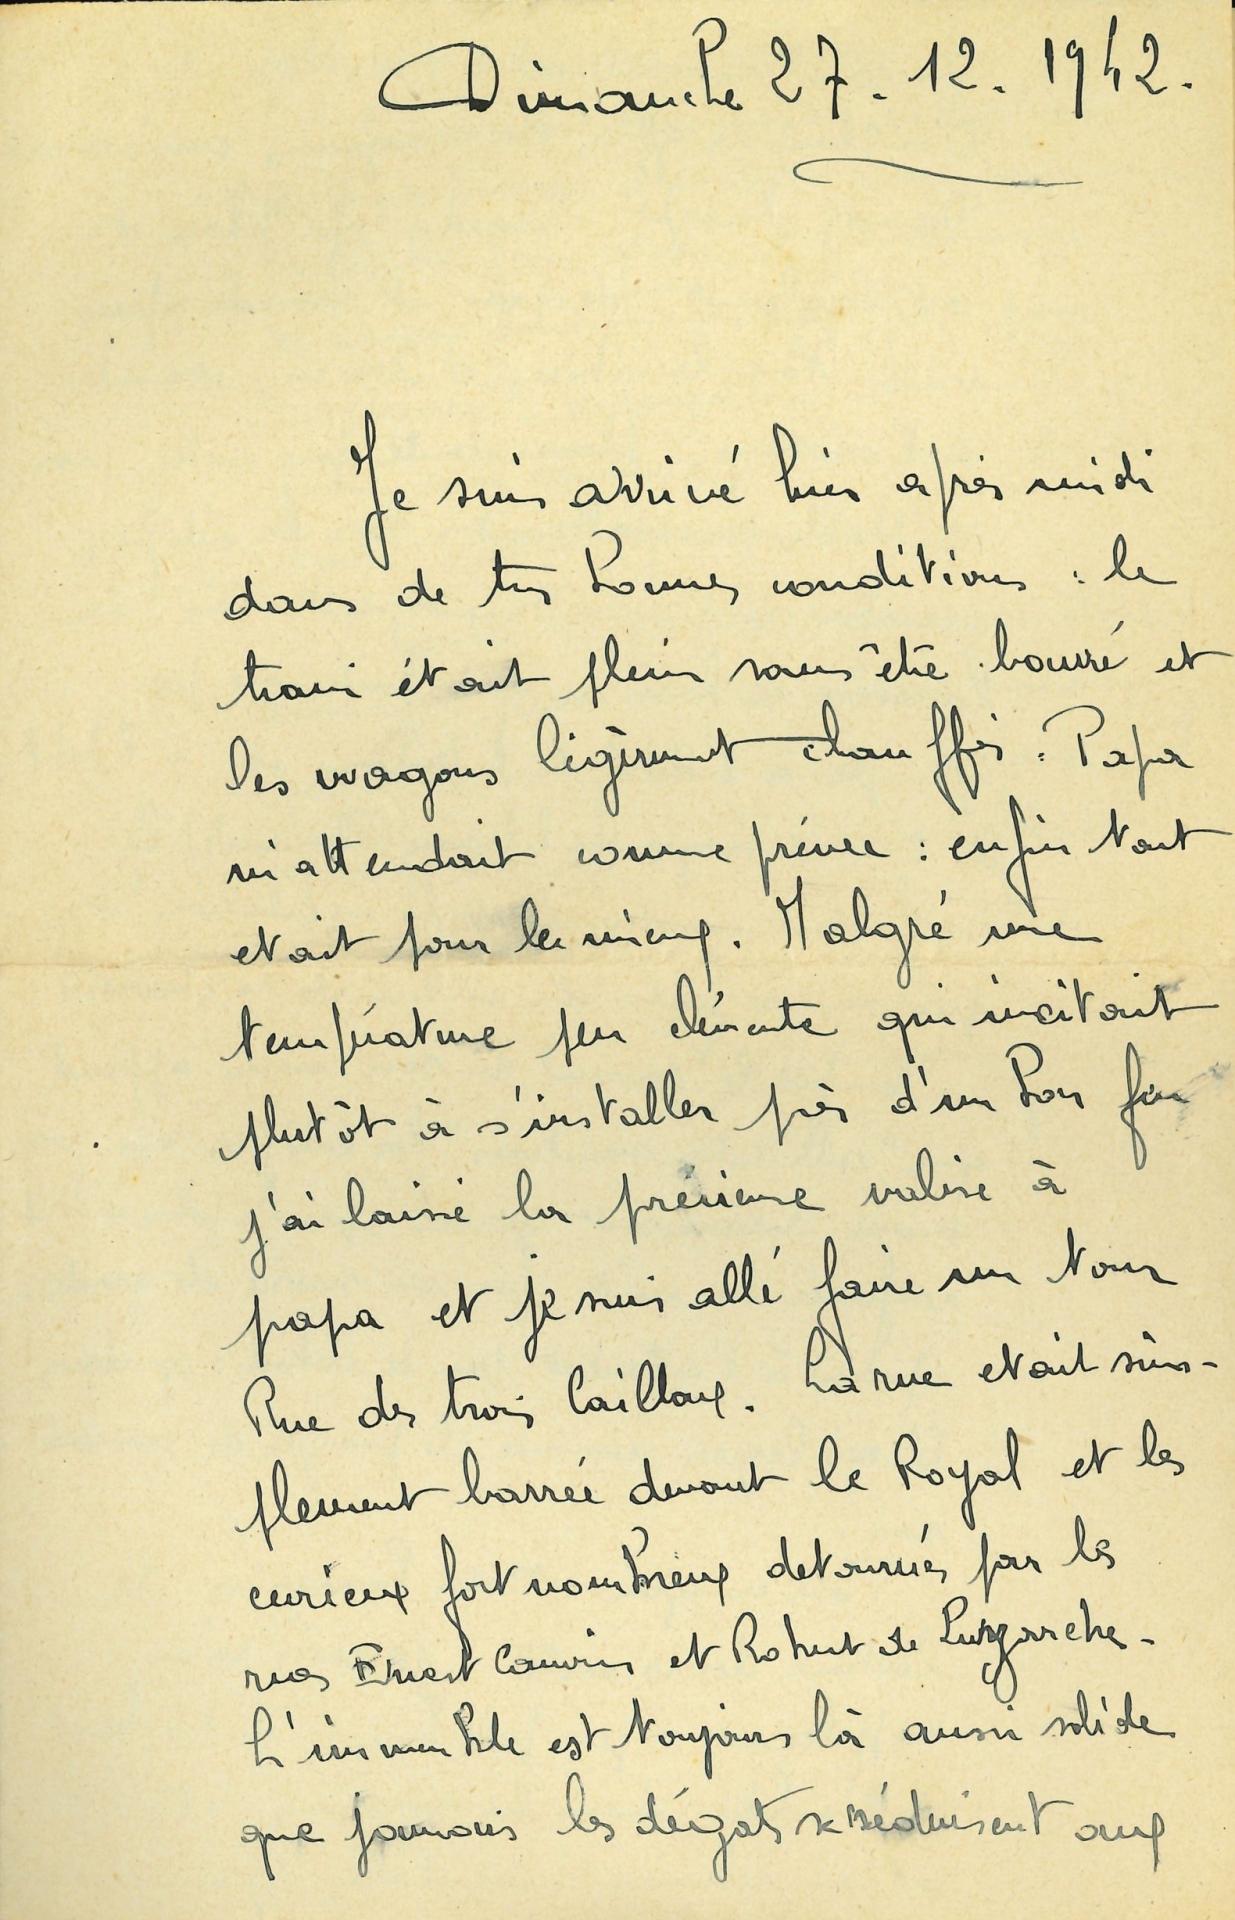 Dimanche 27.12.1942.
Je suis arrivé hier après midi
dans de très bonnes conditions : le
train était plein sans être bourré et
les wagons légèrement chauffés. Papa
m'attendait comme prévu : enfin tout
etait pour le mieux. Malgré une
température peu clémente qui incitait
plutôt à s'installer près d'un bon feu
j'ai laissé la précieuse valise à
papa et je suis allé faire un tour
Rue des trois Cailloux. La rue etait sim-
plement barrée devant le Royal et les
curieux fort nombreux detournés par les
rues Ernest Cauvin et Robert de Luzarches.
L'immeuble est toujours là aussi solide
que jamais les dégats se réduisent aux